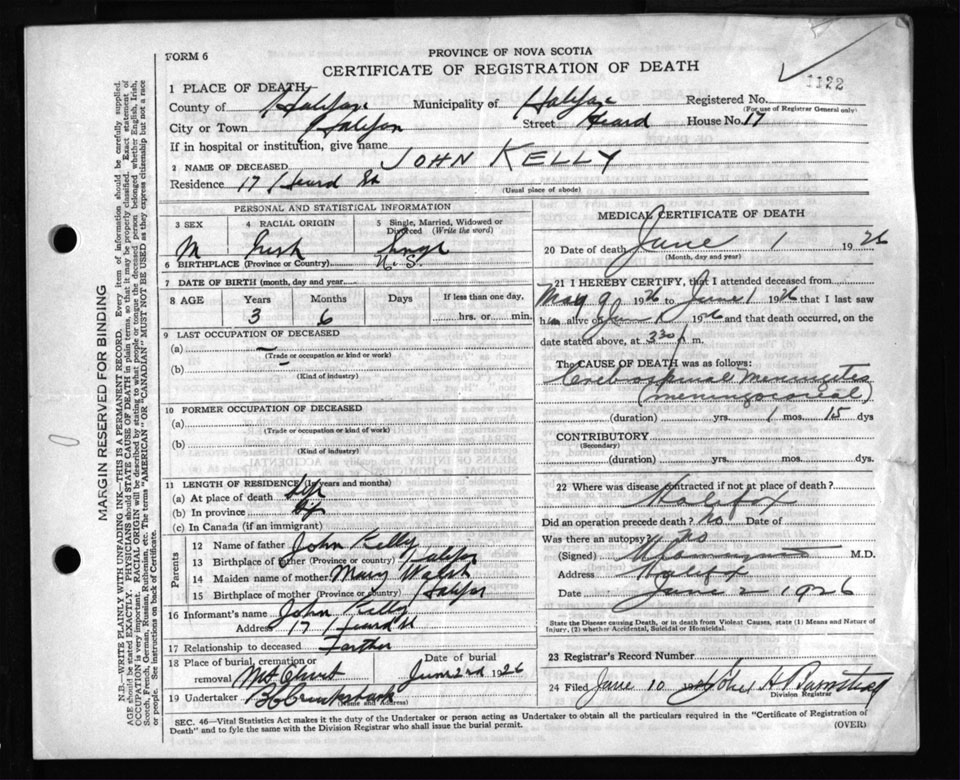 FORM 6
PROVINCE OF NOVA SCOTIA
CERTIFICATE OF REGISTRATION OF DEATH
1122
1 PLACE OF DEATH
County of Halifax Municipality of Halifax Registered No.
(For use of Registrar General only)
City or Town Halifax Street Heard House No. 17
If in hospital or institution, give name
2 NAME OF DECEASED JOHN KELLY
Residence 17 Heard St
(Usual place of abode)
PERSONAL AND STATISTICAL INFORMATION
3 SEX 4 RACIAL ORIGIN 5 Single, Married, Widowed or Divorced (Write the word)
M Irish Single
6 BIRTHPLACE (Province or Country) N. S.
7 DATE OF BIRTH (month, day and year)
8 AGE Years Months Days If less than one day,
3 6 hrs. or min.
9 LAST OCCUPATION OF DECEASED
(a) —
(Trade or occupation or kind or work)
(b)
(Kind of industry)
10 FORMER OCCUPATION OF DECEASED
(a)
(Trade or occupation or kind of work)
(b)
(Kind of industry)
11 LENGTH OF RESIDENCE (in years and months)
(a) At place of death life
(b) In province life
(c) In Canada (if an immigrant)
Parents
12 Name of father John Kelly
13 Birthplace of father (Province or country) Halifax
14 Maiden name of mother Mary Walsh
15 Birthplace of mother (Province or country) Halifax
16 Informant's name John Kelly
Address 17 Heard St
17 Relationship to deceased Farther
18 Place of burial, cremation or removal Mt Olivet
Date of burial June 2nd 1926
19 Undertaker
(Name and Address)
MEDICAL CERTIFICATE OF DEATH
20 Date of death June 1 1926
(Month, day and year)
21 I HEREBY CERTIFY, that I attended deceased from
May 9 1926 to June 1 1926 that I last saw
him alive on June 1926 and that death occurred, on
date stated above, at 330 m.
The CAUSE OF DEATH was as follows:
Cerebrospinal Meningites
(meningococcal)
(duration) yrs. 1 mos. 15 dys
CONTRIBUTORY
(Secondary)
(duration) yrs. mos. dys.
22 Where was disease contracted if not at place of death?
Halifax
Did an operation precede death? no Date of
Was there an autopsy? no
(Signed) M.D.
Address Halifax
Date June 2 1926
State the Disease causing Death, or in death from Violent Causes, state (1) Means and Nature of
Injury, (2) whether Accidental, Suicidal or Homicidal.
23 Registrar's Record Number
24 Filed June 10 1926
Division Registrar
SEC. 46—Vital Statistics Act makes it the duty of the Undertaker or person acting as Undertaker to obtain all the particulars required in the "Certificate of Registration of
Death" and to fyle the same with the Division Registrar who shall issue the burial permit.
(OVER)
MARGIN RESERVED FOR BINDING
N.B.—WRITE PLAINLY WITH UNFADING INK—THIS IS A PERMANENT RECORD. Every item of information should be carefully supplied.
AGE should be stated EXACTLY. PHYSICIANS should STATE CAUSE OF DEATH in plain terms, so that it may be properly classified. Exact statement of
OCCUPATION is very important. RACIAL ORIGIN will be described by stating to what people or tongue the deceased person belonged whether English, Irish,
Scotch, French, German, Russian, Ruthenian, etc. The terms "AMERICAN" OR "CANADIAN" MUST NOT BE USED as they express citizenship but not a race
or people. See instructions on back of Certificate.